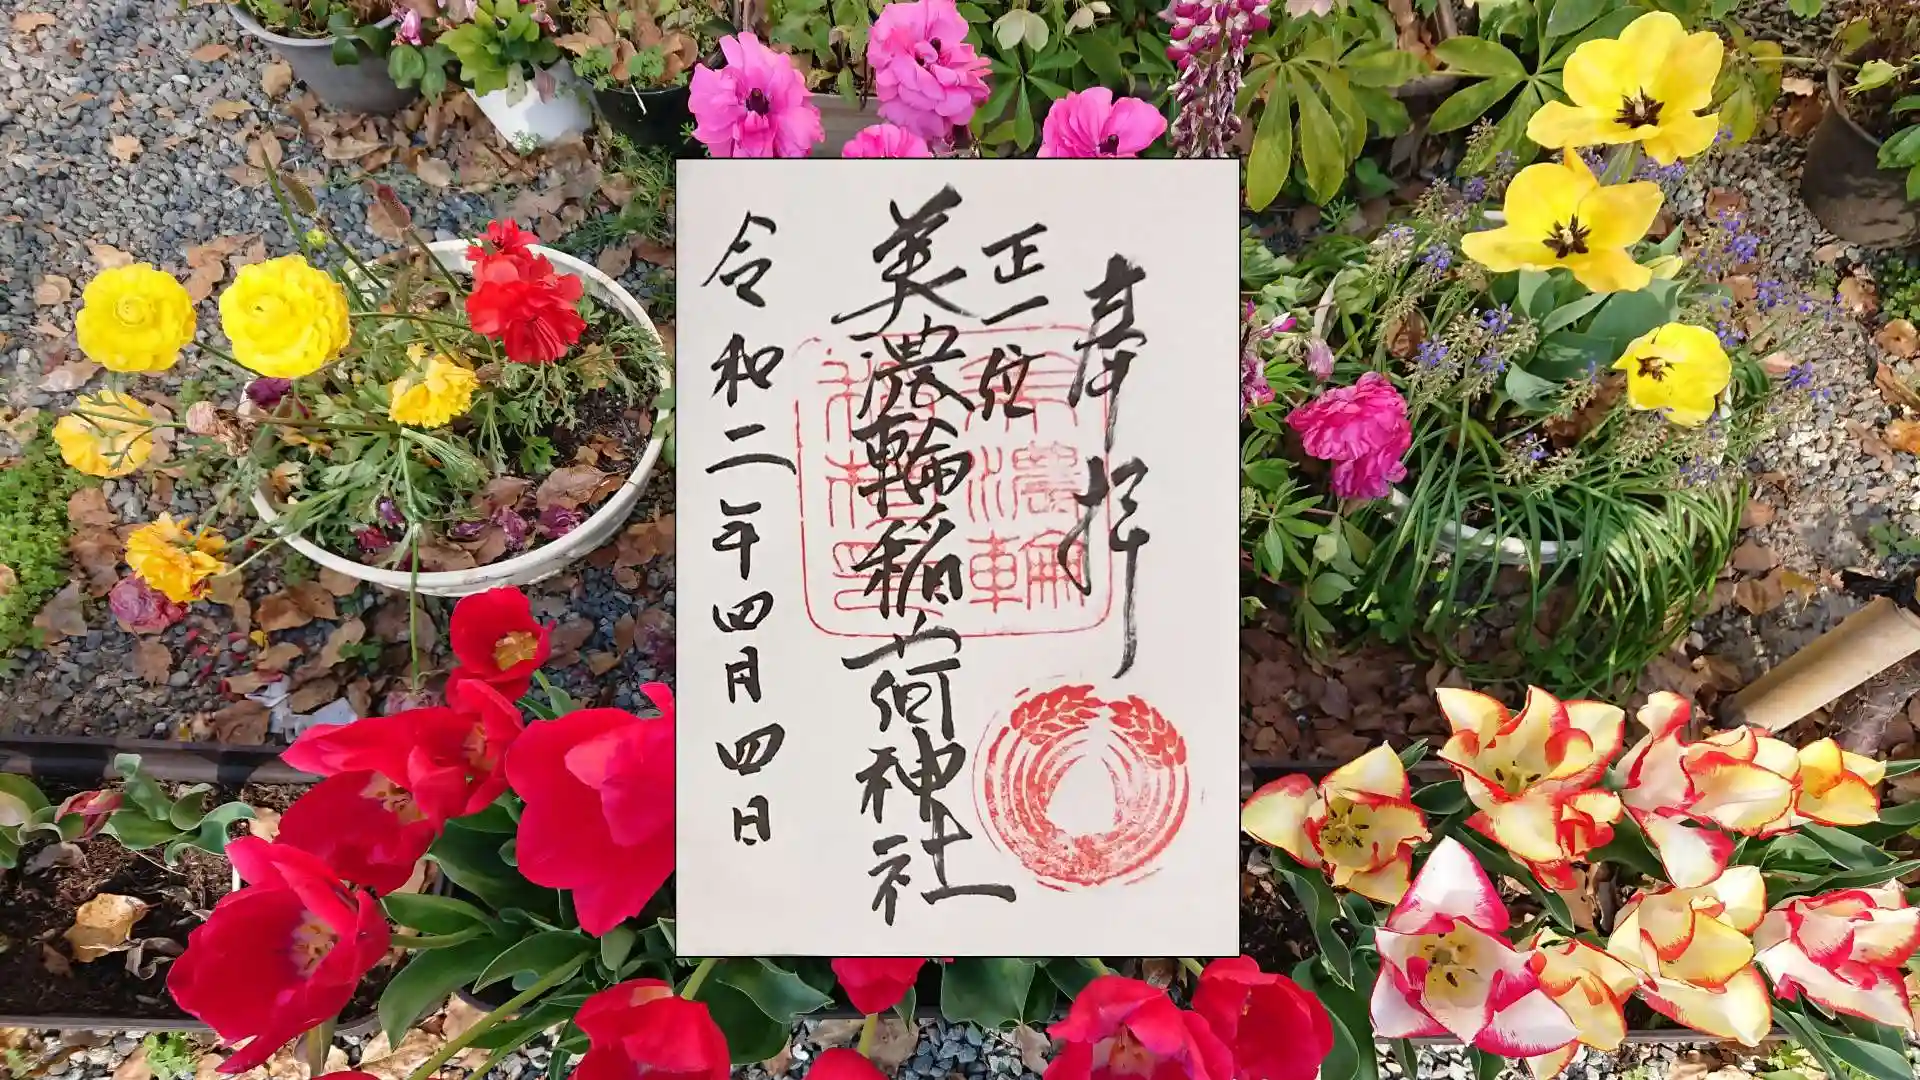 奉拝
正一位
美濃輪稲荷神社
令和二年四月四日
美濃輪